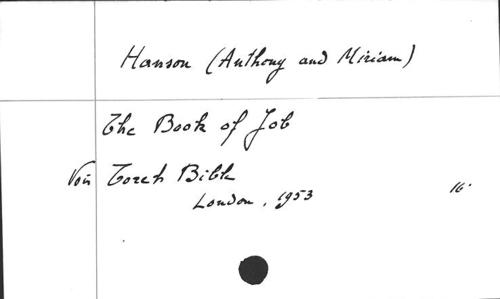 Hanson (Anthony and Miriam)
The Book of Job
Voir Torch Bible
London, 1953
16.